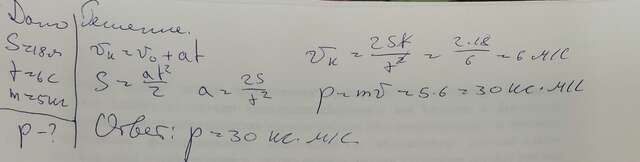 Дано Решение.
S=18м
t=6c
m=5кг
p-?
v_к = v_0 + at
S = at²/2 a = 2S/t²
v_к = 2St/t² = 2·18/6 = 6 м/с
p=mv=5·6=30 кг·м/с
Ответ: p=30 кг·м/с.